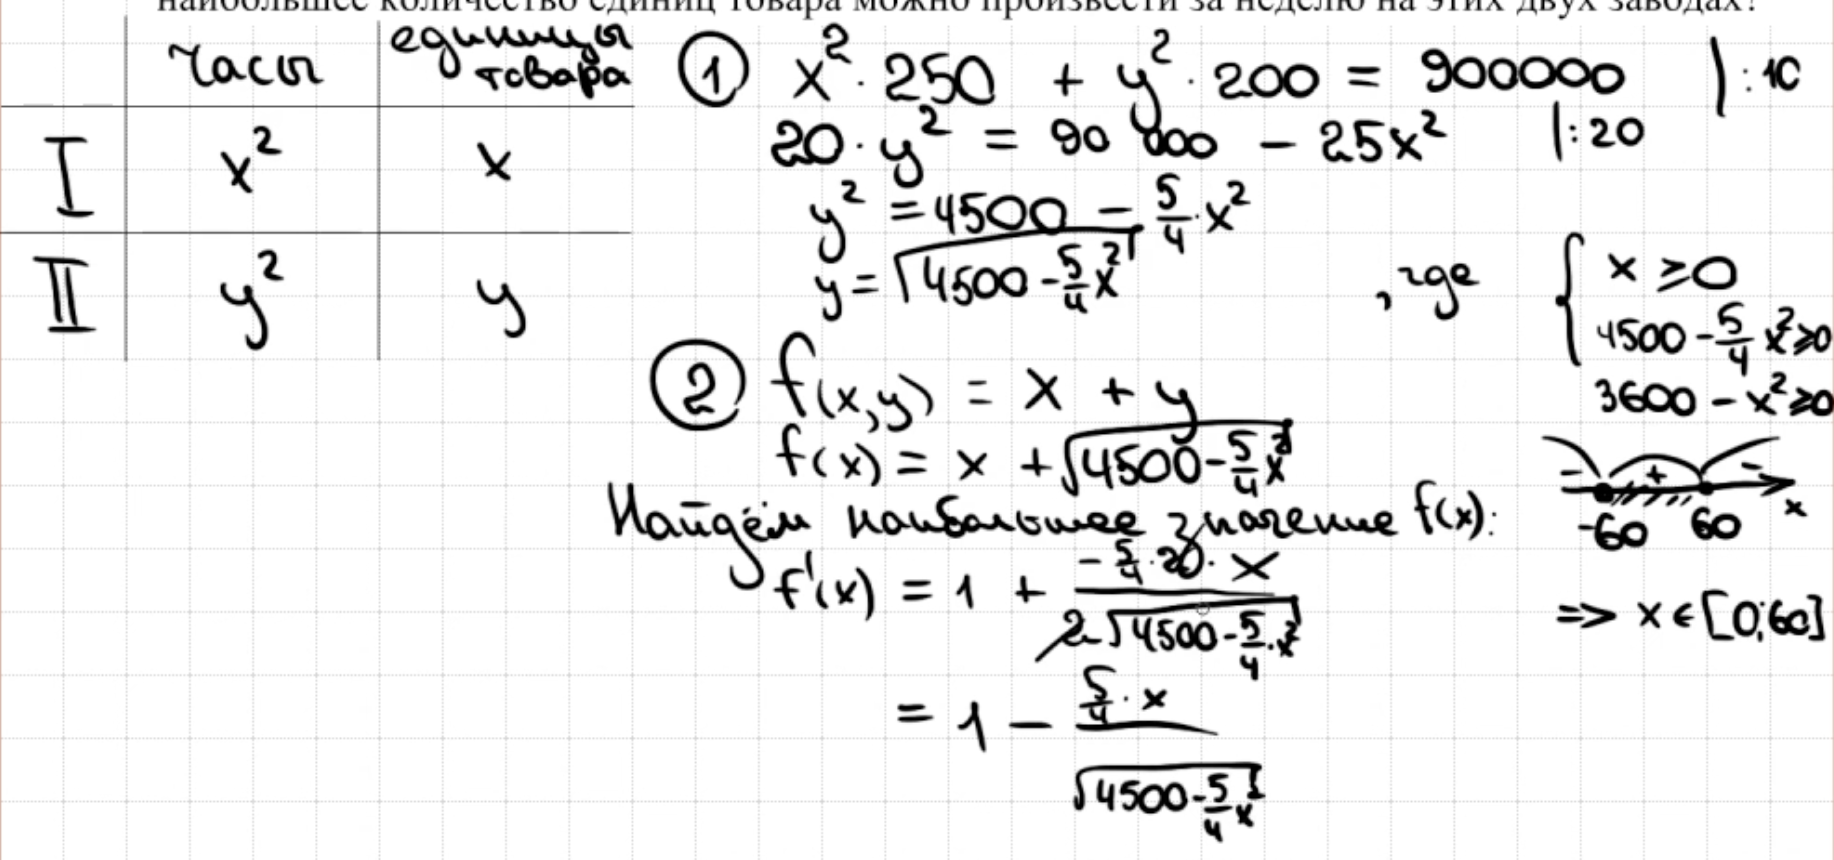 наибольшее количество единиц товара можно произвести за неделю на этих двух заводах?
часы единицы товара
I x² x
II y² y
① x² · 250 + y² · 200 = 900000 |:10
20 · y² = 90 000 − 25x² |:20
y² = 4500 − 5/4 · x²
y = √(4500 − 5/4 x²) , где { x ≥ 0
4500 − 5/4 x² ≥ 0
3600 − x² ≥ 0
② f(x,y) = x + y
f(x) = x + √(4500 − 5/4 x²)
− + −
-60 60 x
Найдём наибольшее значение f(x):
f'(x) = 1 + (− 5/4 · 2 · x)/(2√(4500 − 5/4 · x²))
=> x ∈ [0;60]
= 1 − (5/4 · x)/√(4500 − 5/4 x²)